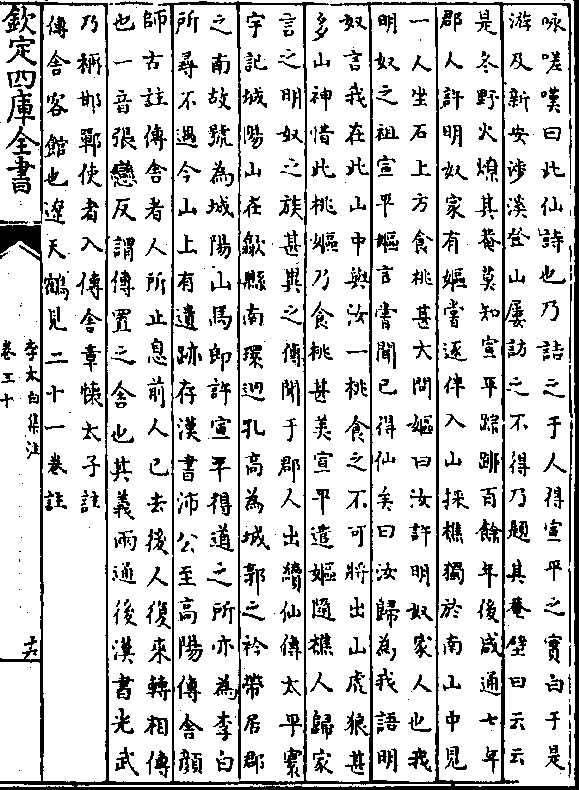 咏嗟嘆曰此仙詩也乃詰之于人得宣平之實白于是
游及新安涉溪登山屢訪之不得乃題其菴壁曰云云
是冬野火燎其菴莫知宣平踪跡百餘年後咸通七年
郡人許明奴家有嫗嘗逐伴入山採樵獨於南山中見
一人坐石上方食桃甚大問嫗曰汝許明奴家人也我
明奴之祖宣平嫗言嘗聞已得仙矣曰汝歸為我語明
奴言我在此山中與汝一桃食之不可將出山虎狼甚
多山神惜此桃嫗乃食桃甚美宣平遣嫗隨樵人歸家
言之明奴之族甚異之傳聞于郡人出續仙傳太平寰
宇記城陽山在歙縣南環迴孔高為城郭之衿帶居郡
之南故號為城陽山焉即許宣平得道之所亦為李白
所尋不遇今山上有遺跡存漢書沛公至高陽傳舍顔
師古註傳舍者人所止息前人已去後人復來轉相傳
也一音張戀反謂傳置之舍也其義兩通後漢書光武
乃稱邯鄲使者入傳舍章懐太子註
傳舍客館也遼天鶴見二十一卷註
欽定四庫全書
李太白集注
卷三十
十六